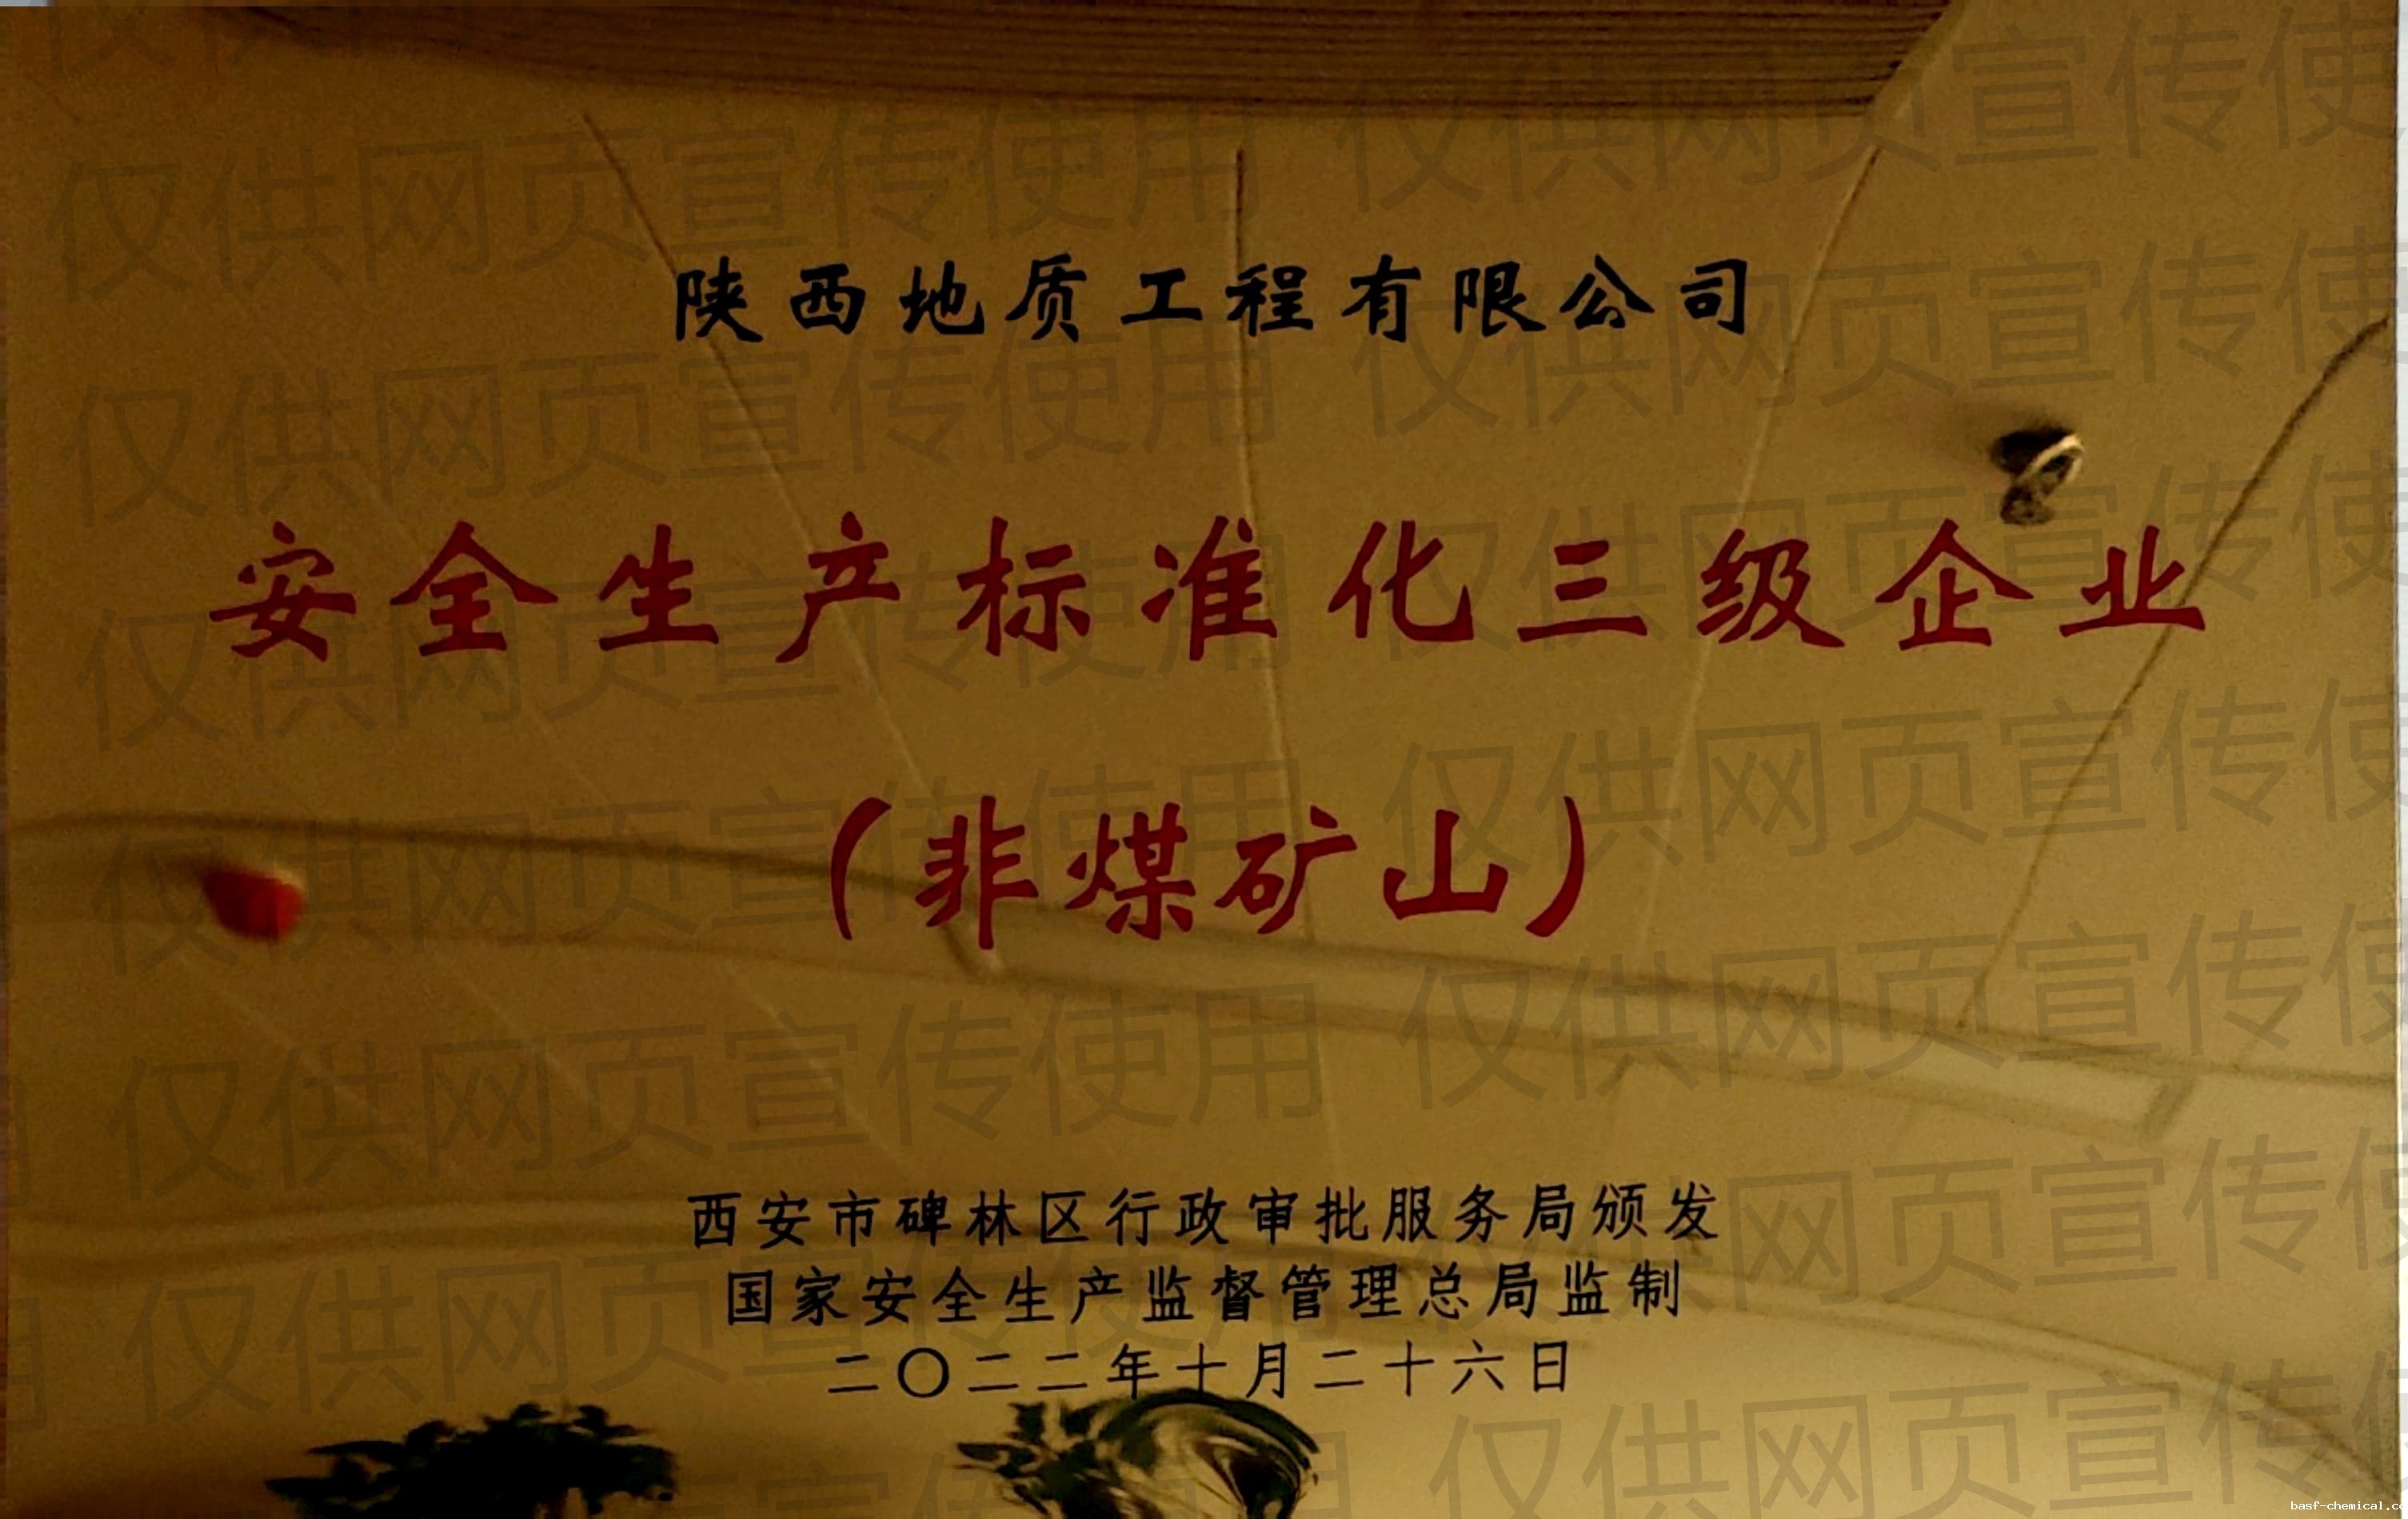 陕西地质工程有限公司
安全生产标准化三级企业
(非煤矿山)
西安市碑林区行政审批服务局颁发
国家安全生产监督管理总局监制
二〇二二年十月二十六日
仅供网页宣传使用
basf-chemical.co